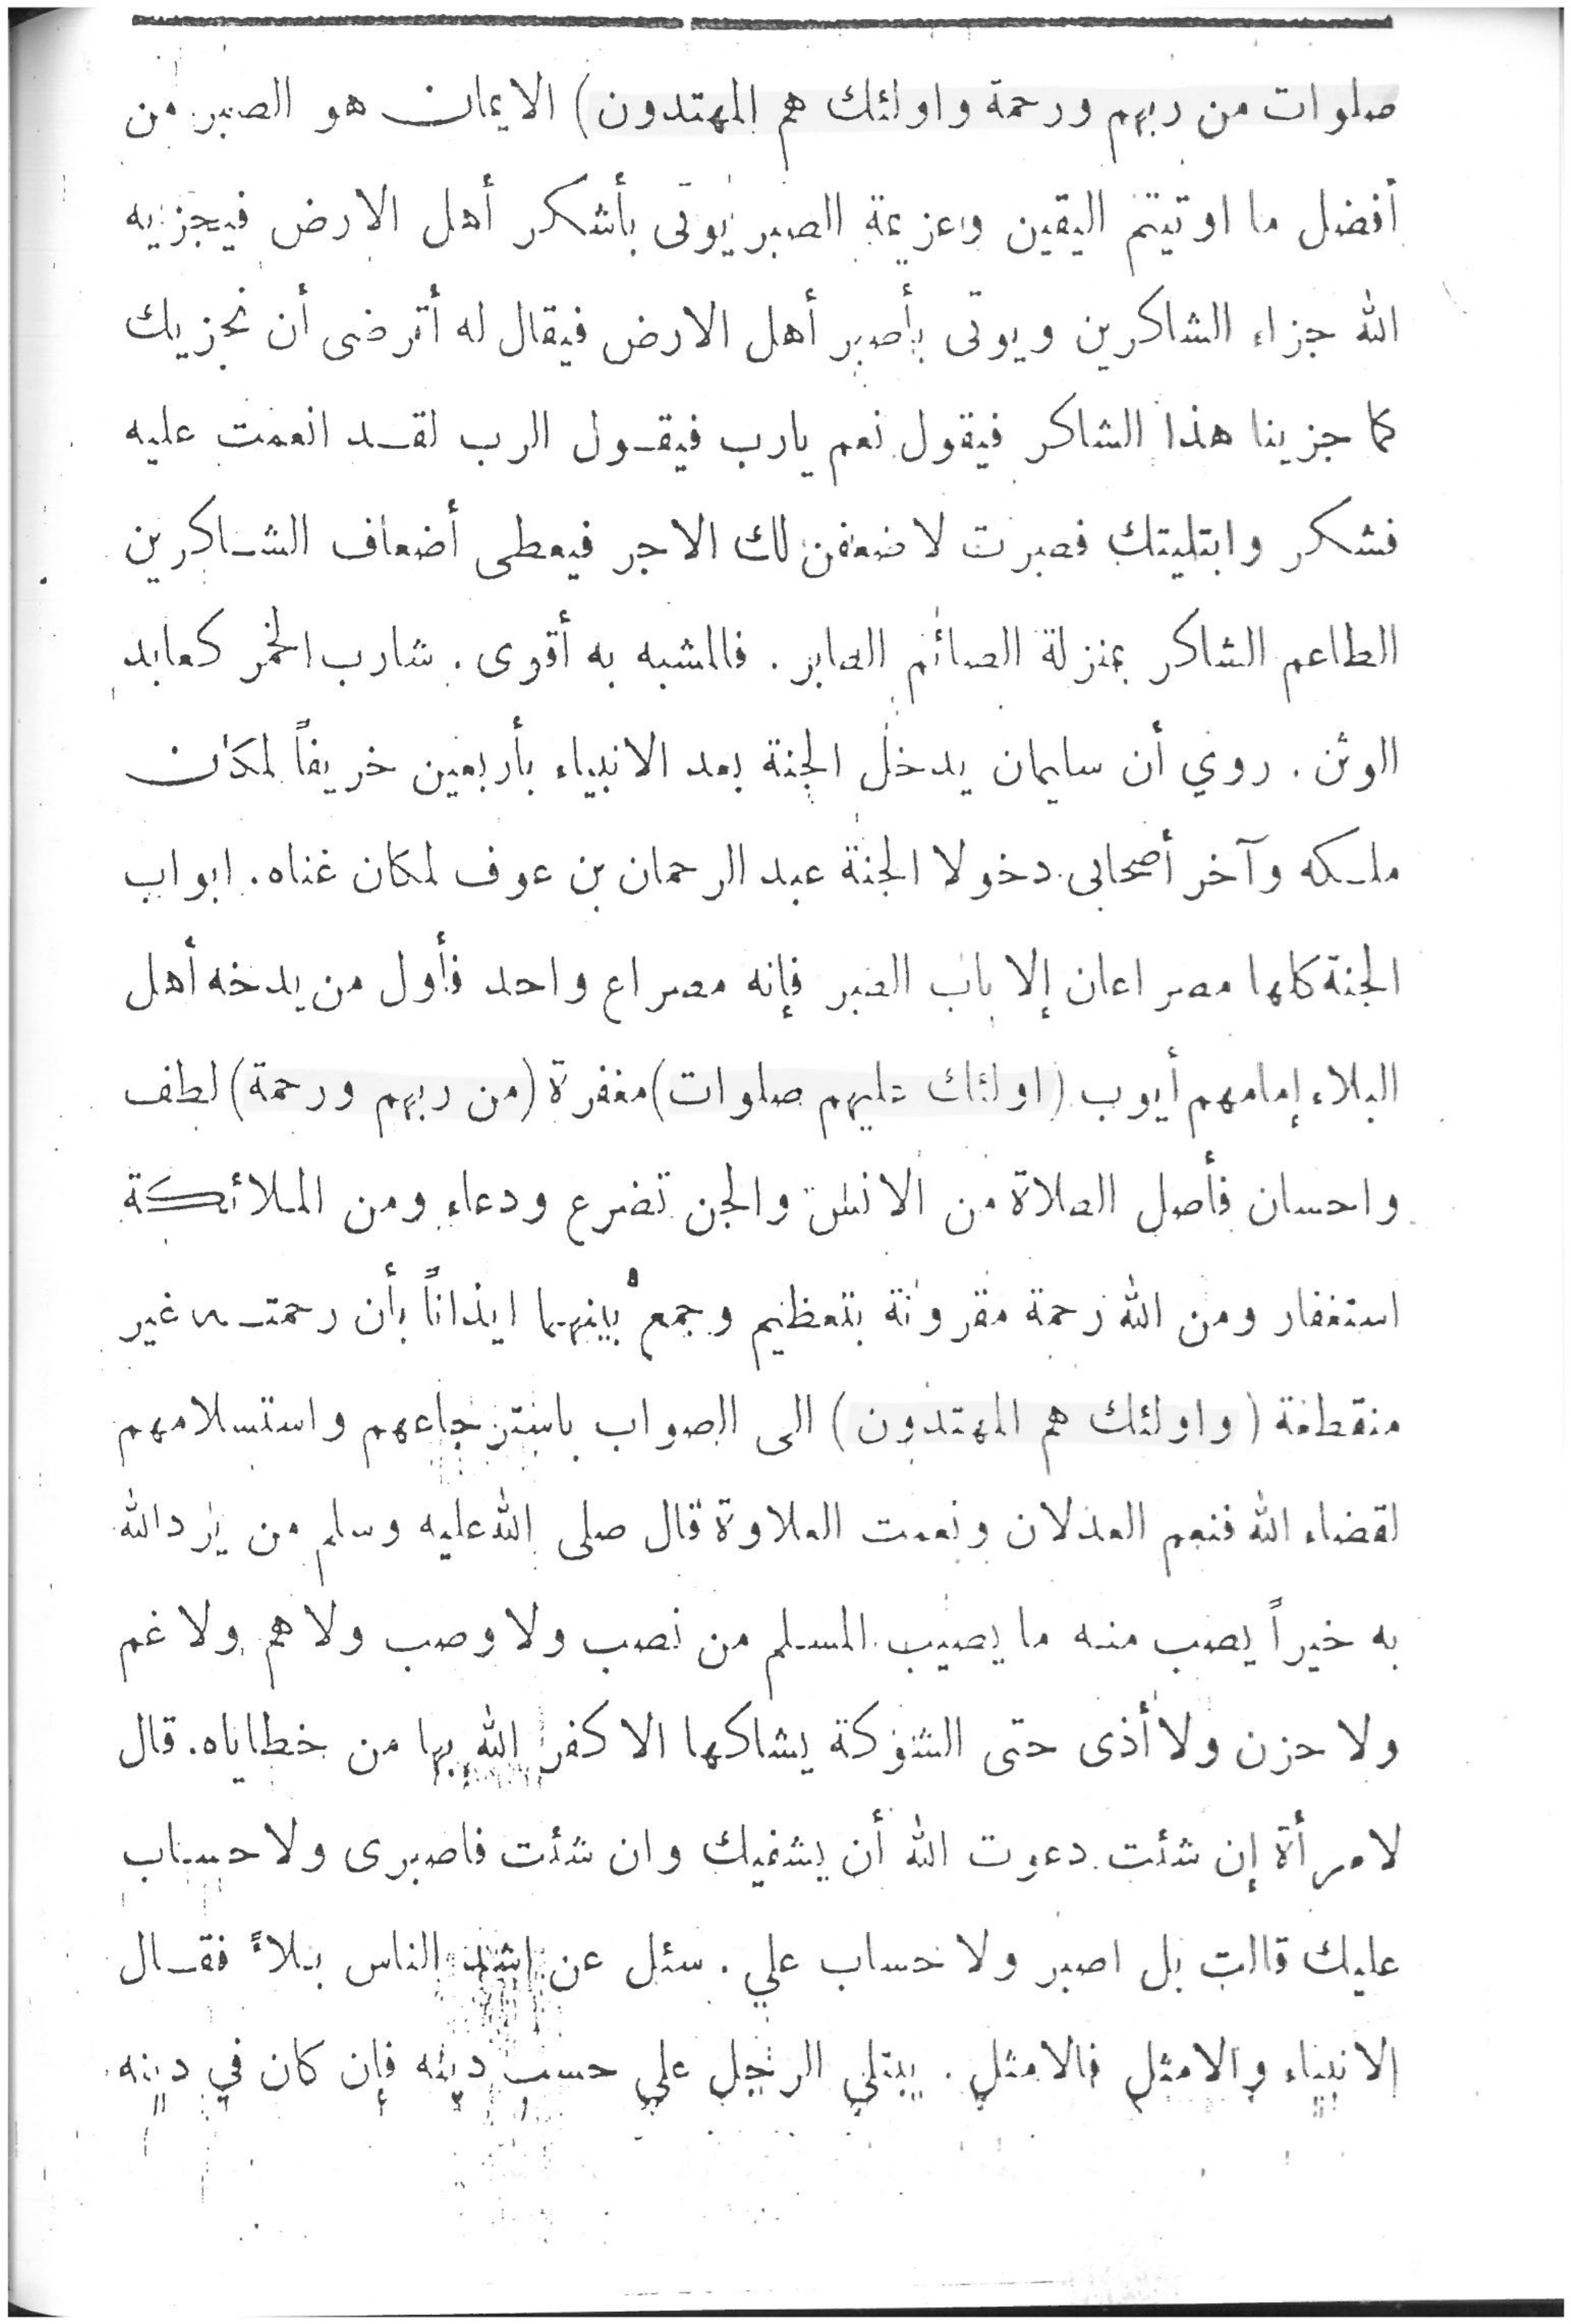 صلوات من ربهم ورحمة واولئك هم المهتدون) الايمان هو الصبر من
أفضل ما اوتيتم اليقين وعزيمة الصبر يوتى بأشكر أهل الارض فيجزيه
الله جزاء الشاكرين ويوتى بأصبر أهل الارض فيقال له أترضى أن نجزيك
كما جزينا هذا الشاكر فيقول نعم يارب فيقول الرب لقد انعمت عليه
فشكر وابتليتك فصبرت لاضعفن لك الاجر فيعطى أضعاف الشاكرين
الطاعم الشاكر بمنزلة الصائم الصابر . فالمشبه به أقوى . شارب الخمر كعابد
الوثن . روي أن سليمان يدخل الجنة بعد الانبياء بأربعين خريفاً لمكان
ملكه وآخر أصحابى دخولا الجنة عبد الرحمان بن عوف لمكان غناه . ابواب
الجنة كلها مصراعان إلا باب الصبر فإنه مصراع واحد فأول من يدخه أهل
البلاء إمامهم أيوب (اولئك عليهم صلوات) مغفرة (من ربهم ورحمة) لطف
واحسان فأصل الصلاة من الانس والجن تضرع ودعاء ومن الملائكة
استغفار ومن الله رحمة مقرونة بتعظيم وجمع بينهما ايذاناً بأن رحمته غير
منقطعة (واولئك هم المهتدون) الى الصواب باسترجاعهم واستسلامهم
لقضاء الله فنعم العدلان ونعمت العلاوة قال صلى الله عليه وسلم من يرد الله
به خيراً يصب منه ما يصيب المسلم من نصب ولا وصب ولا هم ولا غم
ولا حزن ولا أذى حتى الشوكة يشاكها الا كفر الله بها من خطاياه . قال
لامرأة إن شئت دعوت الله أن يشفيك وان شئت فاصبرى ولا حساب
عليك قالت بل اصبر ولا حساب علي . سئل عن اشد الناس بلاءً فقال
الانبياء والامثل فالامثل . يبتلي الرجل علي حسب دينه فإن كان في دينه